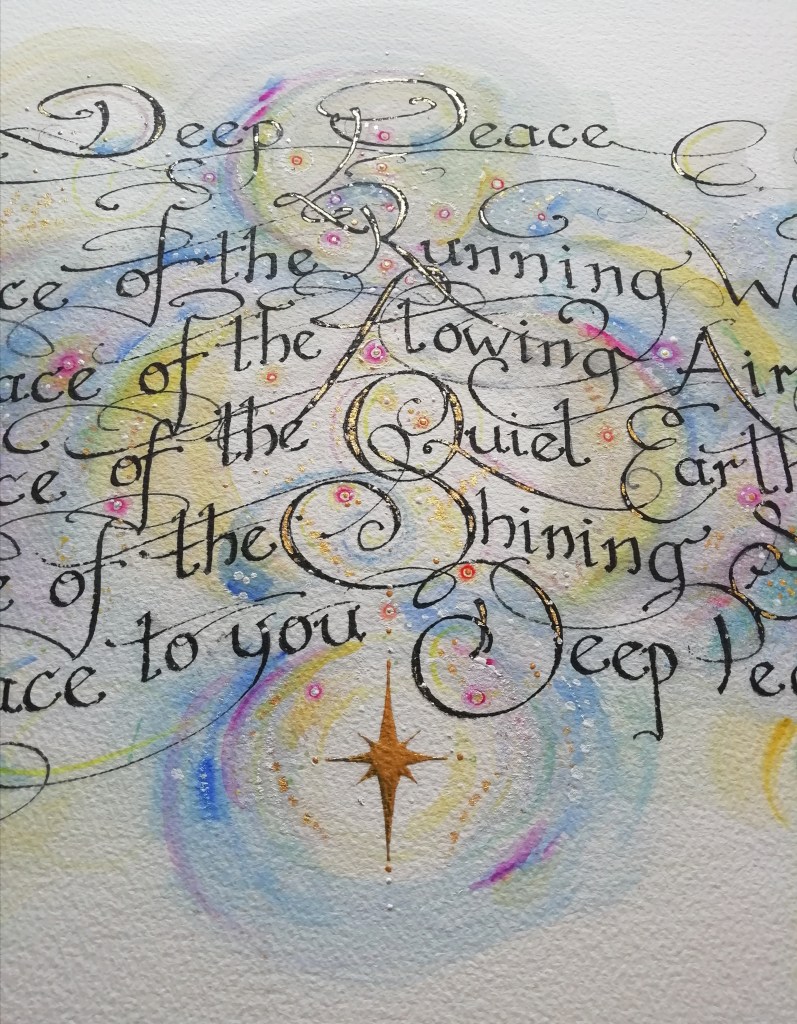 Deep Peace
ce of the Running Wa
ace of the Flowing Air
ce of the Quiet Earth
e of the Shining S
ace to you Deep Pea